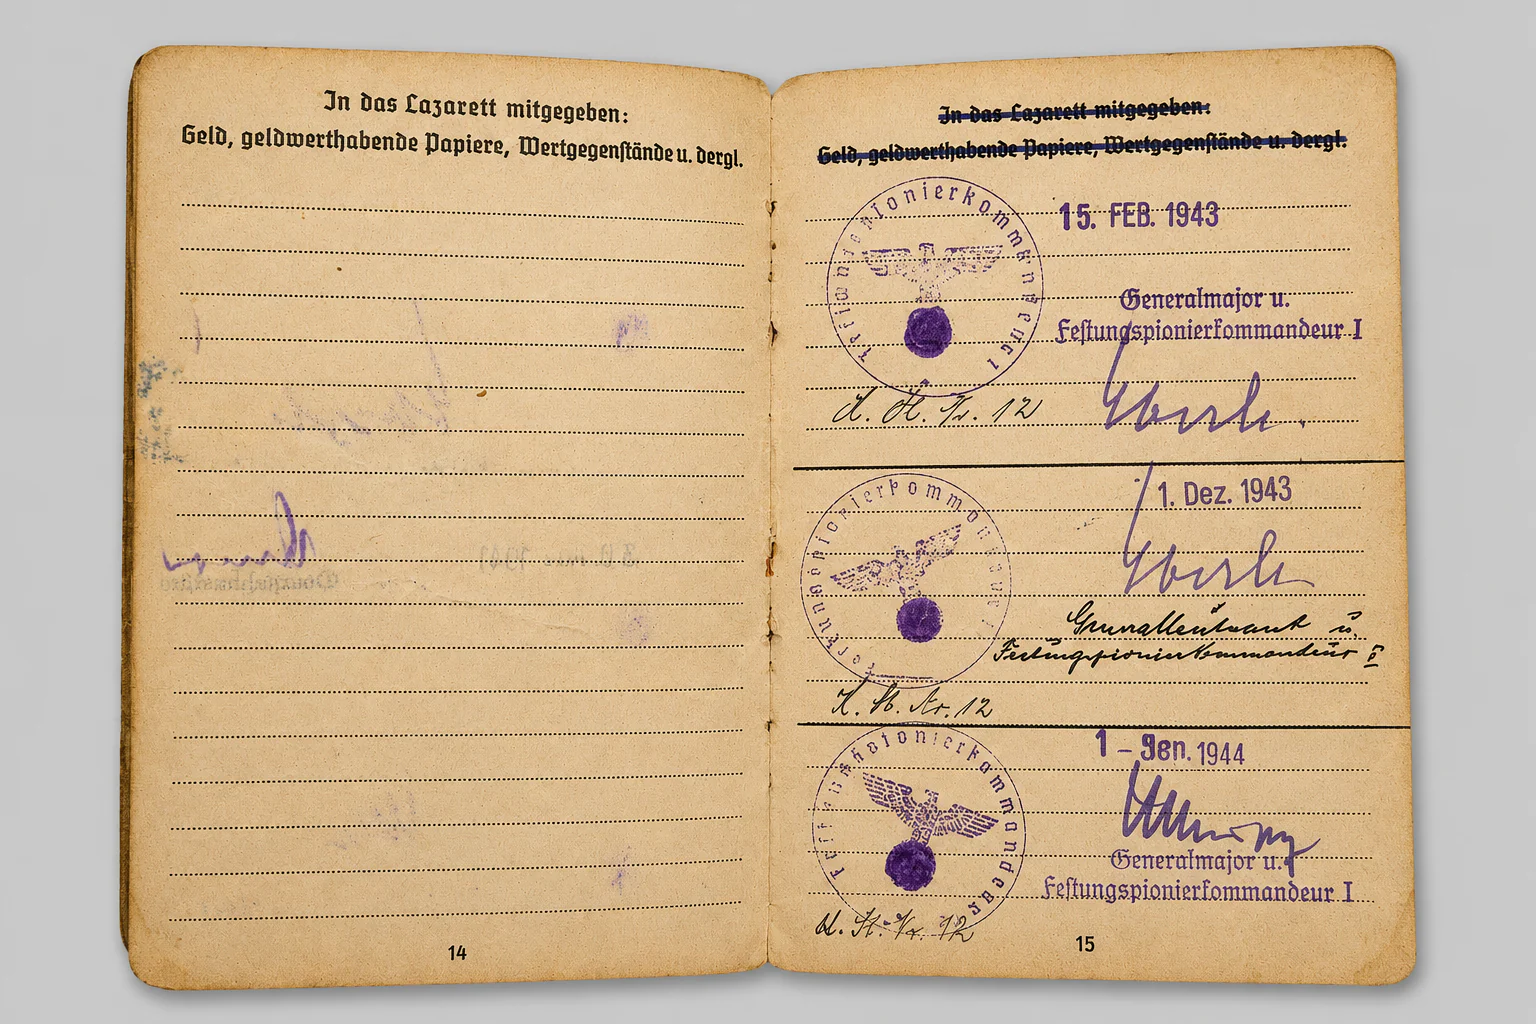 In das Lazarett mitgegeben:
Geld, geldwerthabende Papiere, Wertgegenstände u. dergl.
14
In das Lazarett mitgegeben:
Geld, geldwerthabende Papiere, Wertgegenstände u. dergl.
15. FEB. 1943
Generalmajor u.
Festungspionierkommandeur I
12
1. Dez. 1943
Generalleutnant u.
Festungspionierkommandeur I
K. St. Nr. 12
1 - Jan. 1944
Generalmajor u.
Festungspionierkommandeur I
St. Nr. 12
15